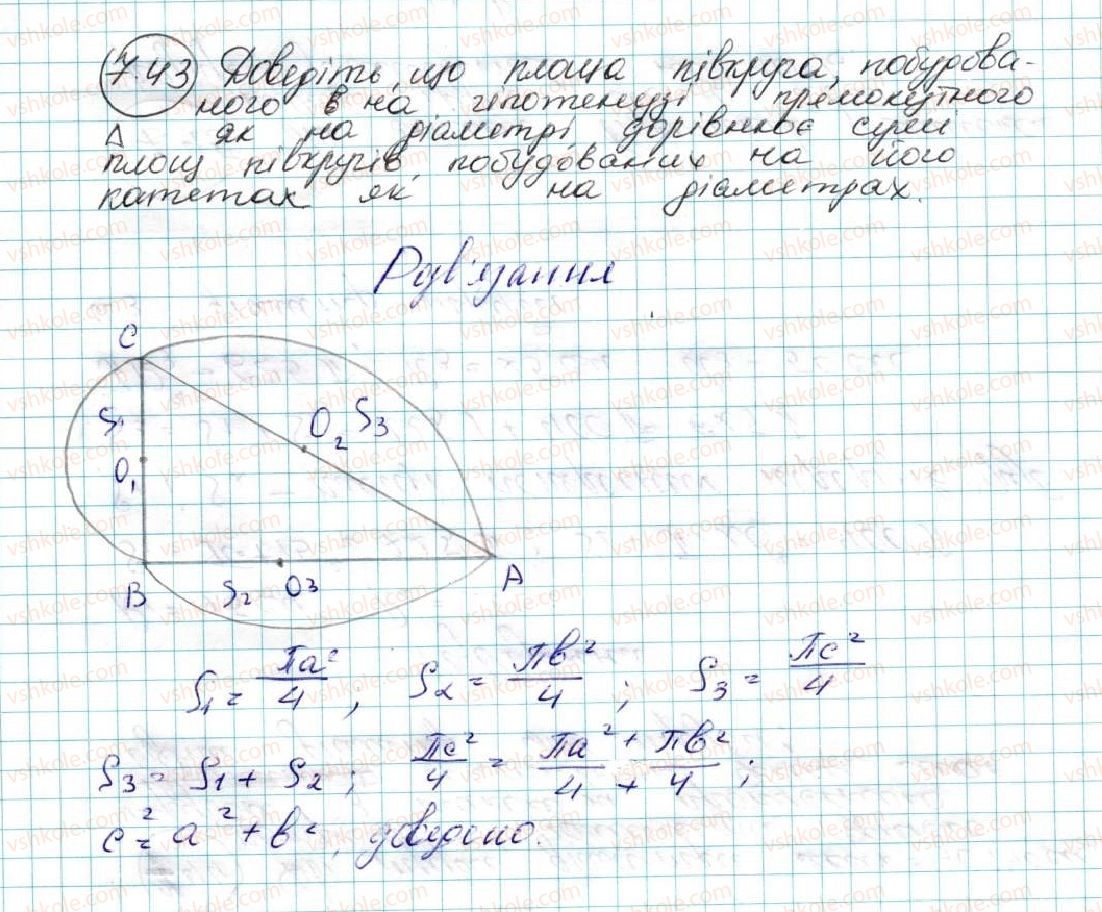 7.43 Доведіть, що площа півкруга, побудова-
ного в на гіпотенузі прямокутного
Δ як на діаметрі дорівнює сумі
площ півкругів, побудованих на його
катетах як на діаметрах.
Розв'язання
C
S1
O1
O2 S3
B
S2 O3
A
S1 = πa²/4 ; S2 = πв²/4 ; S3 = πc²/4
S3 = S1 + S2 ; πc²/4 = πa²/4 + πв²/4 ;
c² = a² + в², доведено.